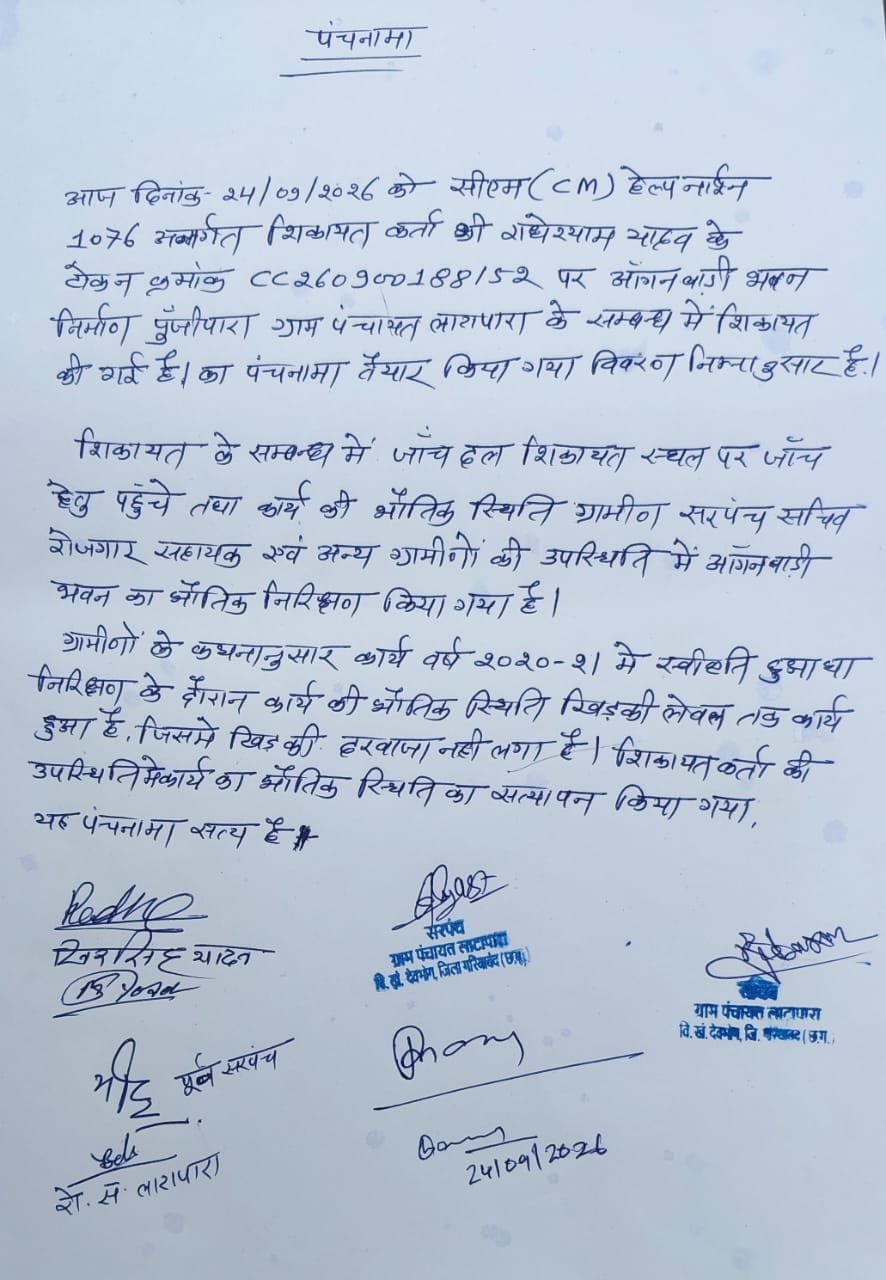 पंचनामा
आज दिनांक- 24/09/2026 को सीएम (CM) हेल्प लाईन
1076 अन्तर्गत शिकायत कर्ता श्री राधेश्याम यादव के
टोकन क्रमांक CC260900188152 पर आँगनबाड़ी भवन
निर्माण पुँजीपारा ग्राम पंचायत लाटापारा के सम्बन्ध में शिकायत
की गई है। का पंचनामा तैयार किया गया विवरण निम्नानुसार है।
शिकायत के सम्बन्ध में जाँच दल शिकायत स्थल पर जाँच
हेतु पहुंचे तथा कार्य की भौतिक स्थिति ग्रामीण सरपंच सचिव
रोजगार सहायक एवं अन्य ग्रामीनों की उपस्थिति में आँगनबाड़ी
भवन का भौतिक निरिक्षण किया गया है।
ग्रामीनों के कथनानुसार कार्य वर्ष 2020-21 मे स्वीकृति हुआ था
निरिक्षण के दौरान कार्य की भौतिक स्थिति खिड़की लेवल तक कार्य
हुआ है, जिसमे खिड़की दरवाजा नही लगा है। शिकायतकर्ता की
उपस्थिति मे कार्य का भौतिक स्थिति का सत्यापन किया गया,
यह पंचनामा सत्य है।
Radhe
सरपंच
ग्राम पंचायत लाटापारा
वि. खं. देवभोग, जिला गरियाबंद (छ.ग.)
सिंह यादव
सचिव
ग्राम पंचायत लाटापारा
वि. खं. देवभोग, जि. गरियाबंद (छ.ग.)
पूर्व सरपंच
रो. स. लाटापारा
24/09/2026